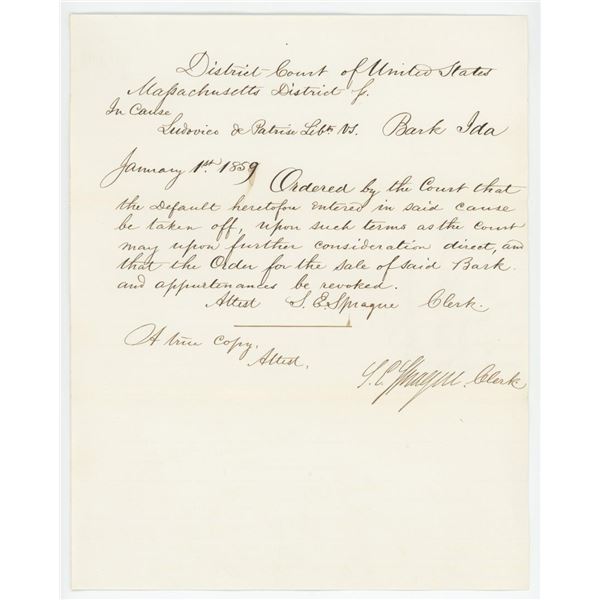 District Court of United States
Massachusetts District Js.
In Cause
Ludovico de Patrise Libts vs. Bark Ida
January 1st. 1859 Ordered by the Court that
the Default heretofore entered in said cause
be taken off, upon such terms as the Court
may upon further consideration direct, and
that the Order for the sale of said Bark
and appurtenances be revoked.
Attest S. E. Sprague Clerk.
A true copy,
Attest,
S. E. Sprague. Clerk